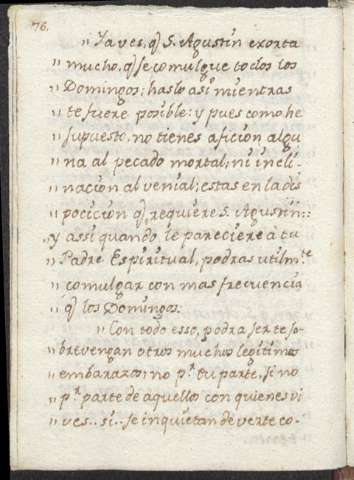 76.
,, Ya ves, q̃ S. Agustin exorta
,, mucho, q̃ se comulgue todos los
,, Domingos; haslo asi mientras
,, te fuere posible: y pues como he
,, supuesto, no tienes aficion algu
,, na al pecado mortal; ni incli
,, nacion al venial; estas en la dis
,, pocicion q̃ requiere S. Agustin:
,, y assi quando le pareciere à tu
,, Padre Espiritual, podras utilm.te
,, comulgar con mas frecuencia
,, q̃ los Domingos.
,, Con todo esso, podra ser te so-
,, brevengan otros muchos legitimos
,, embarazos; no p.r tu parte, si no
,, p.r parte de aquellos con quienes vi
,, ves.. si.. se inquietan de verte co-